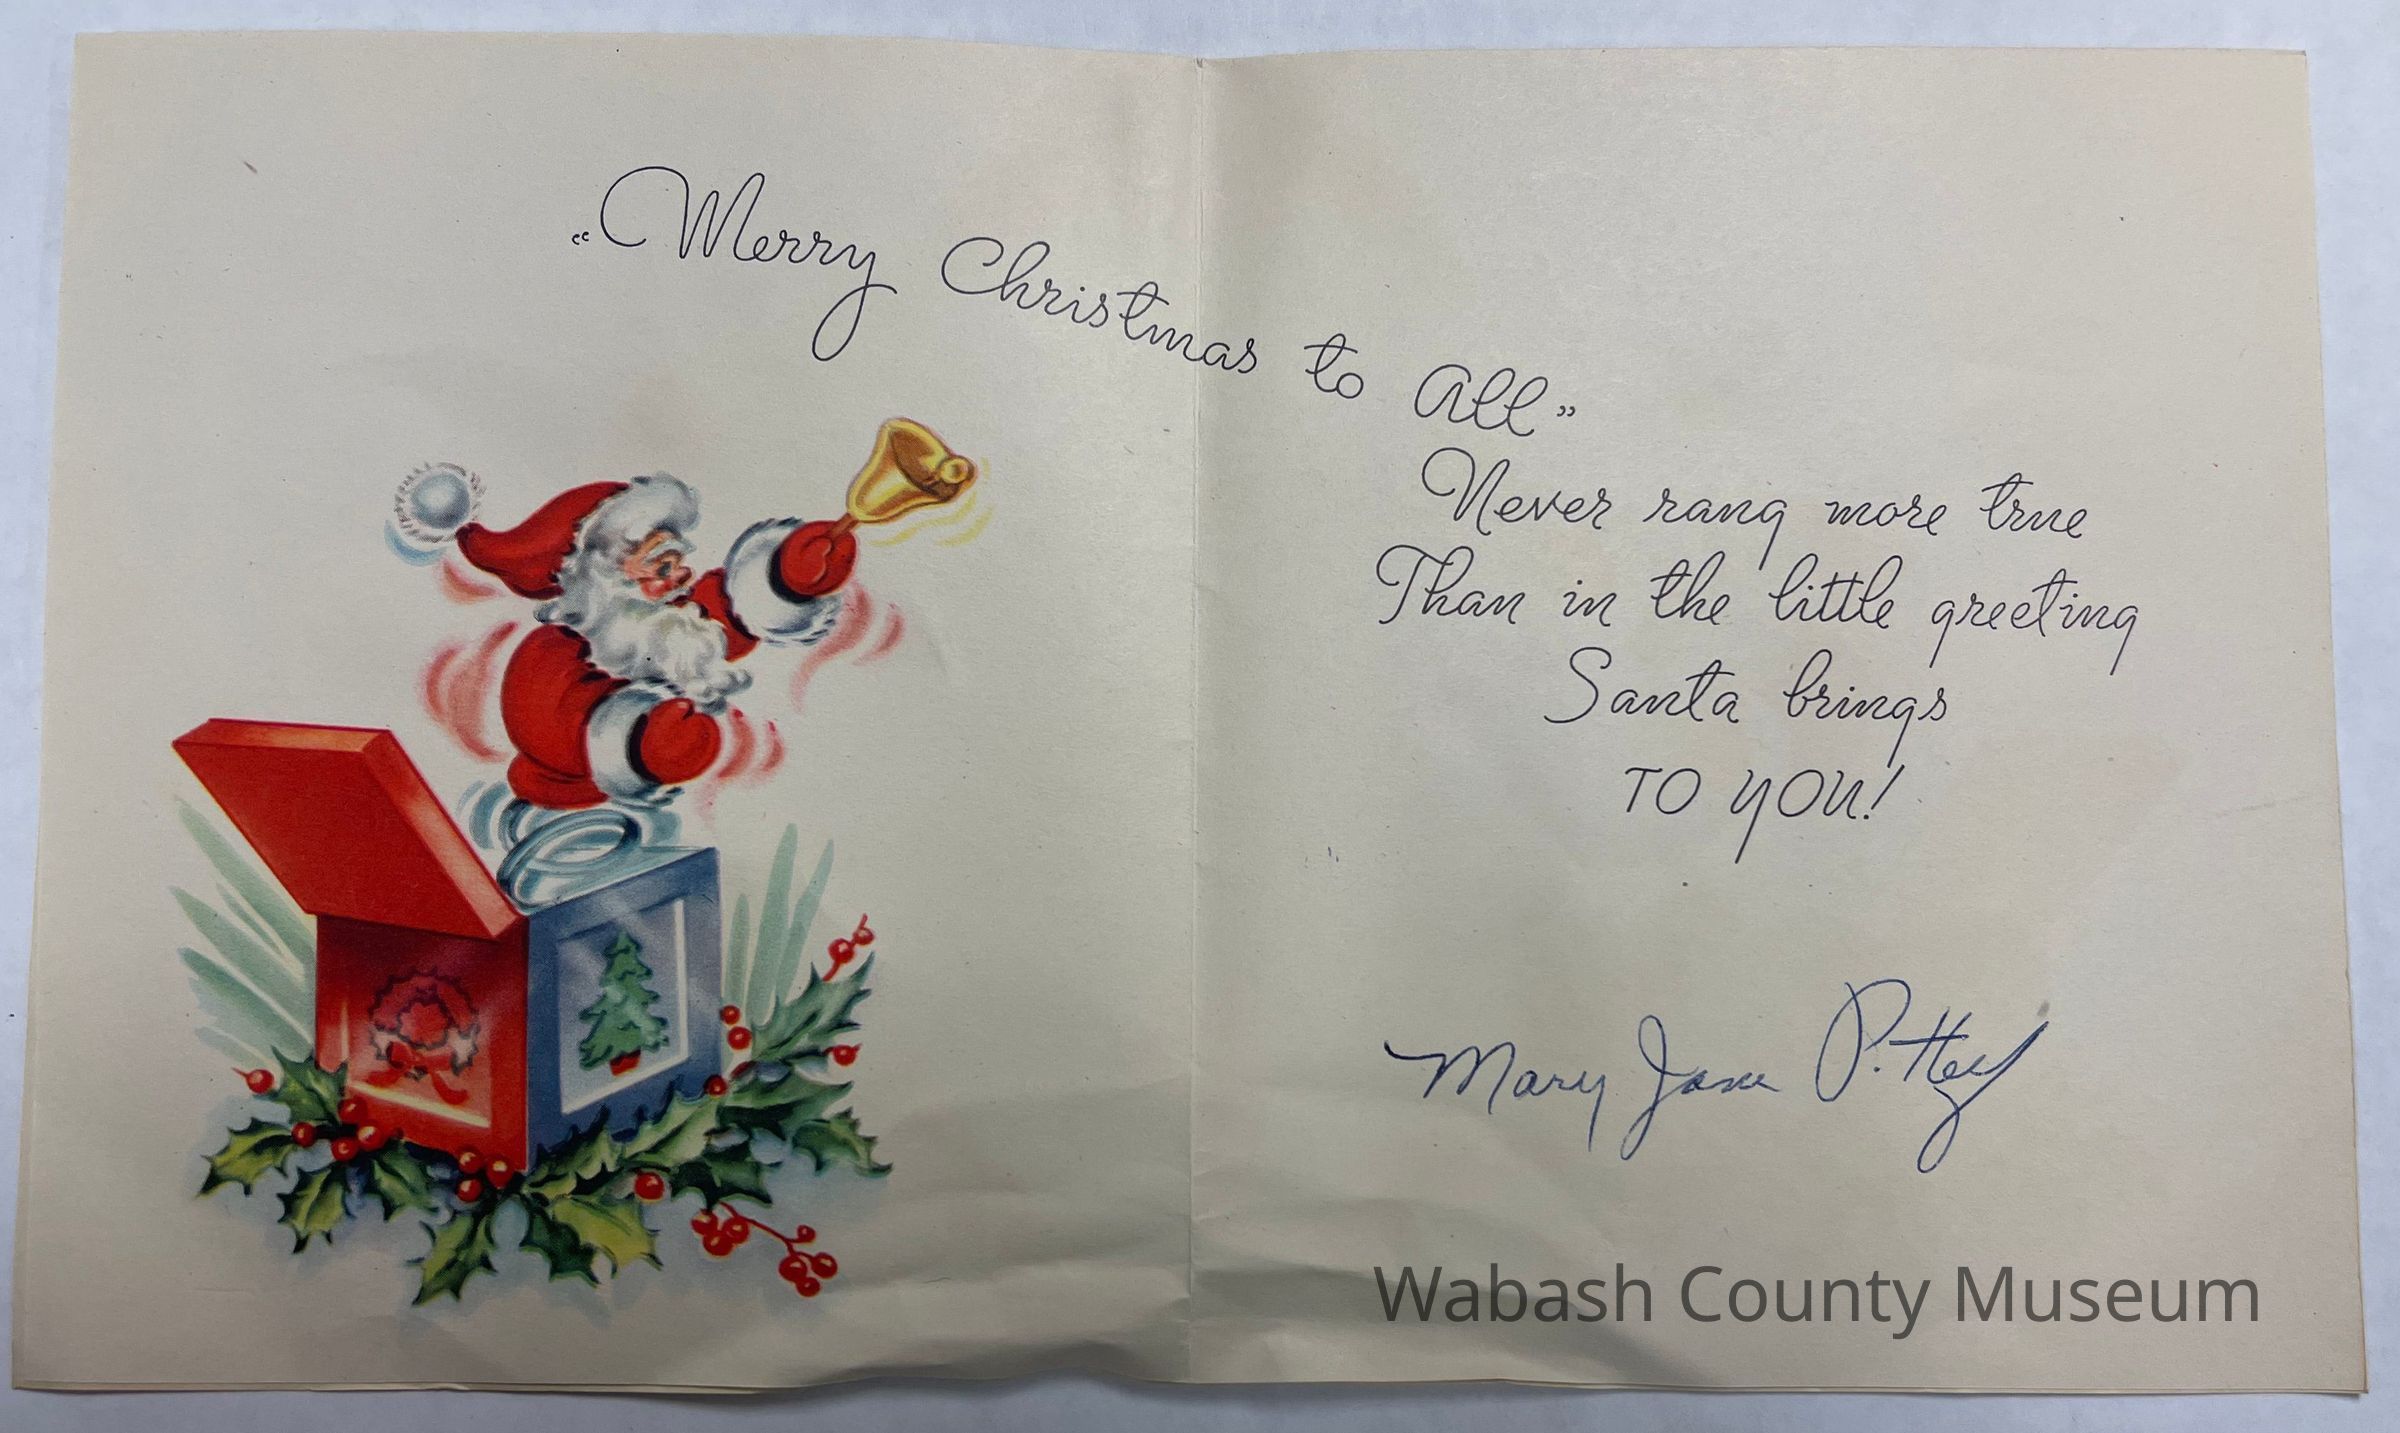 "Merry Christmas to All"
Never rang more true
Than in the little greeting
Santa brings
TO YOU!
Mary Jane Pittey
Wabash County Museum